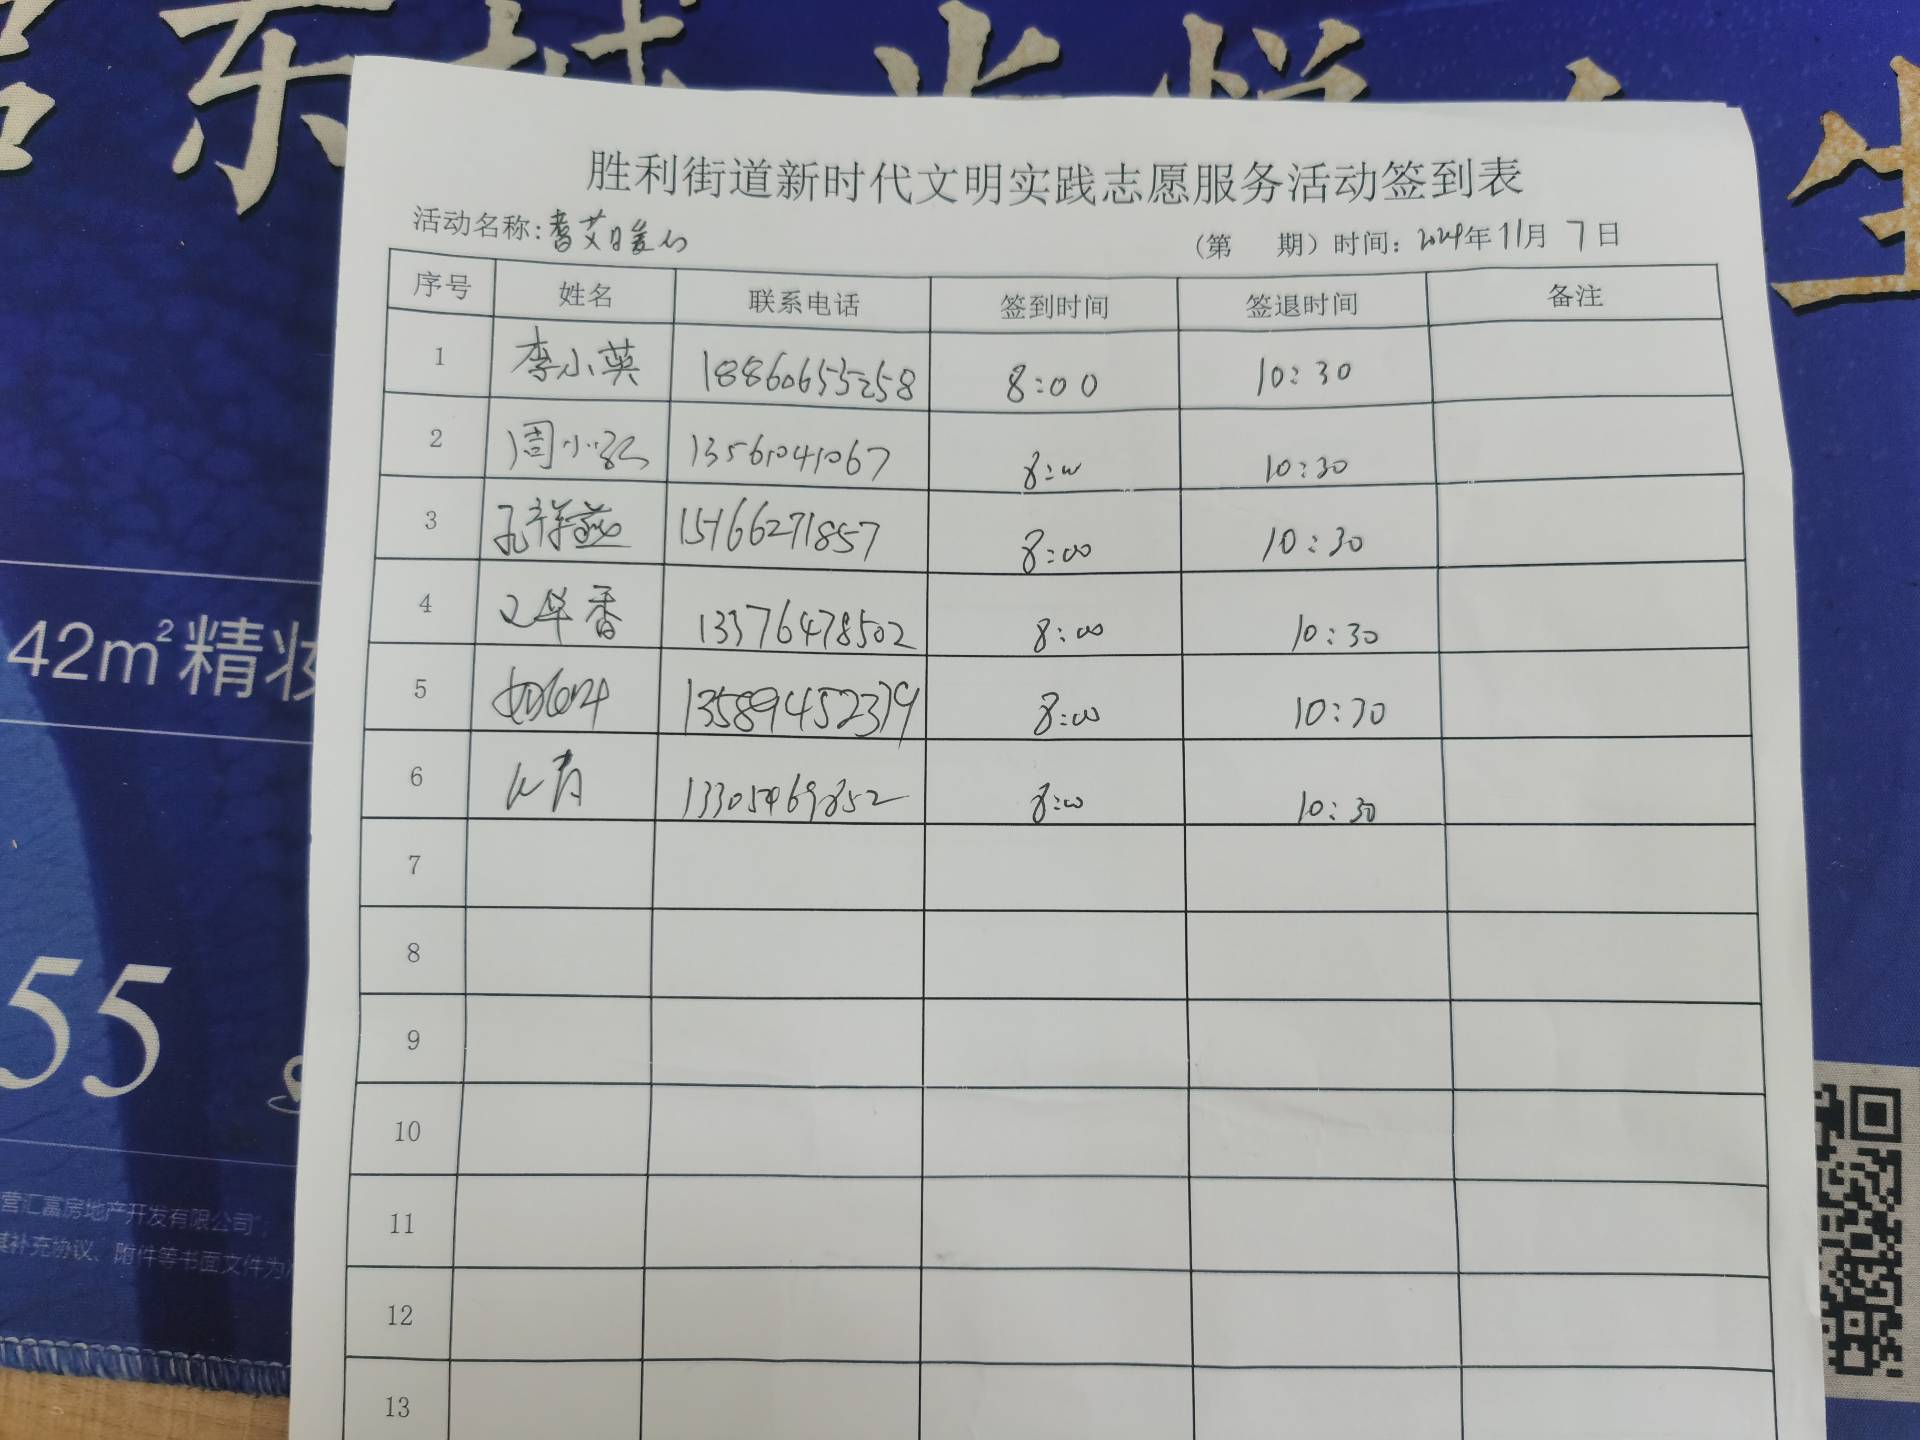 东城
42m²精妆
55
营汇富房地产开发有限公司";
其补充协议、附件等书面文件为
胜利街道新时代文明实践志愿服务活动签到表
活动名称:
(第 期) 时间: 2024年11月7日
序号 姓名 联系电话 签到时间 签退时间 备注
1 李小英 18860653258 8:00 10:30
2 周小 13561041067 8:00 10:30
3 孔祥燕 15166271857 8:00 10:30
4 华香 13376478502 8:00 10:30
5 13589452379 8:00 10:30
6 13305469852 8:00 10:30
7
8
9
10
11
12
13